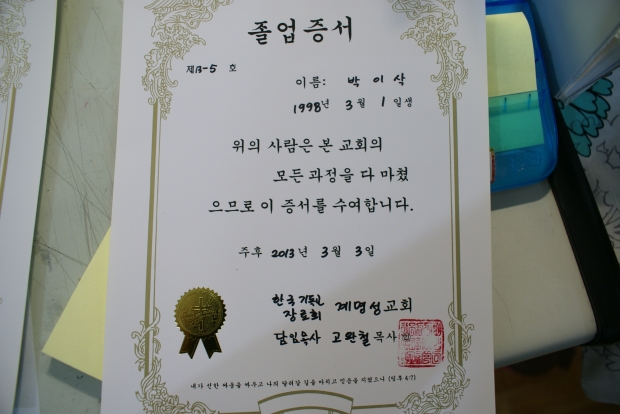 졸업증서
제13-5 호
이름: 박 이 삭
1998년 3월 1일생
위의 사람은 본 교회의
모든 과정을 다 마쳤
으므로 이 증서를 수여합니다.
주후 2013년 3월 3일
한국기독교
장로회 계명성교회
담임목사 고완철 목사 인
내가 선한 싸움을 싸우고 나의 달려갈 길을 마치고 믿음을 지켰으니 (딤후 4:7)